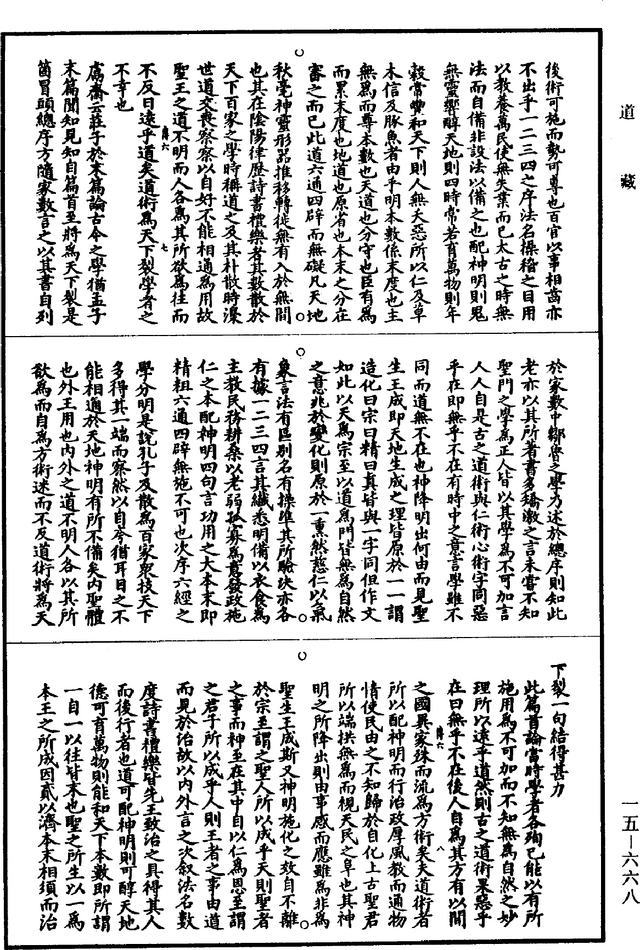 道藏
後術可施而勢可尊也百官以事相齒亦
不出乎一二三四之序法名操稽之目用
以教養萬民使無失業而已太古之時無
法而自備非設法以備之也配神明則鬼
無靈響醇天地則四時常若育萬物則年
穀常豐和天下則人無夭惡所以仁及草
木信及豚魚者由乎明本數係末度也主
無為而尊本數也天道也分守也臣有為
而累末度也地道也原省也本末之分在
審之而已此道六通四辟而無礙凡天地
秋毫神靈形器推移轉徙無有入於無間
也其在陰陽律歷詩書禮樂者其數散於
天下百家之學時稱道之及其朴散時澆
世道交喪察察以自好不能相通為用故
聖王之道不明而人各為其所欲為往而
不反日遠乎道矣道術為天下裂學者之
不幸也
鬳齋云莊子於末篇論古今之學猶孟子
末篇聞知見知自篇首至將為天下裂是
箇冒頭總序方隨家數言之以其書自列
於家數中鄒魯之學乃述於總序則知此
老亦以其所著書多矯激之言未嘗不知
聖門之學為正人皆以其學為不可加言
人人自是古之道術與仁術心術字同惡
乎在即無乎不在有時中之意言學雖不
同而道無不在也神降明出何由而見聖
生王成即天地生成之理皆原於一一謂
造化曰宗曰精曰真皆與一字同但作文
如此以天為宗至以道為門皆無為自然
之意兆於變化則原於一熏然慈仁以氣
象言法有區別名有操準其所驗決亦各
有據一二三四言其纖悉明備以衣食為
主教民務耕桑以老弱孤寡為意發政施
仁之本配神明四句言功用之大本末即
精粗六通四辟無施不可也次序六經之
學分明是說孔子及散為百家衆技天下
多得其一端而察然以自今猶耳目之不
能相通於天地神明有所不備矣內聖體
也外王用也內外之道不明人各以其所
欲為而自為方術迷而不反道術將為天
下裂一句結得甚力
此篇首論當時學者各殉己能以有所
施用為不可加而不知無為自然之妙
理所以遠乎道然則古之道術果惡乎
在曰無乎不在後人自為其方有以間
之國異家殊而流為方術矣夫道術者
所以配神明而行治政厚風教而通物
情使民由之不知歸於自化上古聖君
所以端拱無為而視天民之阜也其神
明之所降出則由事感而應雖為非為
聖生王成斯又神明施化之效自不離
於宗至謂之聖人所以成乎天則聖者
之事而神至在其中自以仁為恩至謂
之君子所以成乎人則王者之事由道
而見於治故以內外言之次叙法名數
度詩書禮樂皆先王致治之具得其人
而後行者也道可配神明則可醇天地
德可育萬物則能和天下本數即所謂
一自一以往皆末也聖之所生以一為
本王之所成因貳以濟本末相須而治
一五—六六八